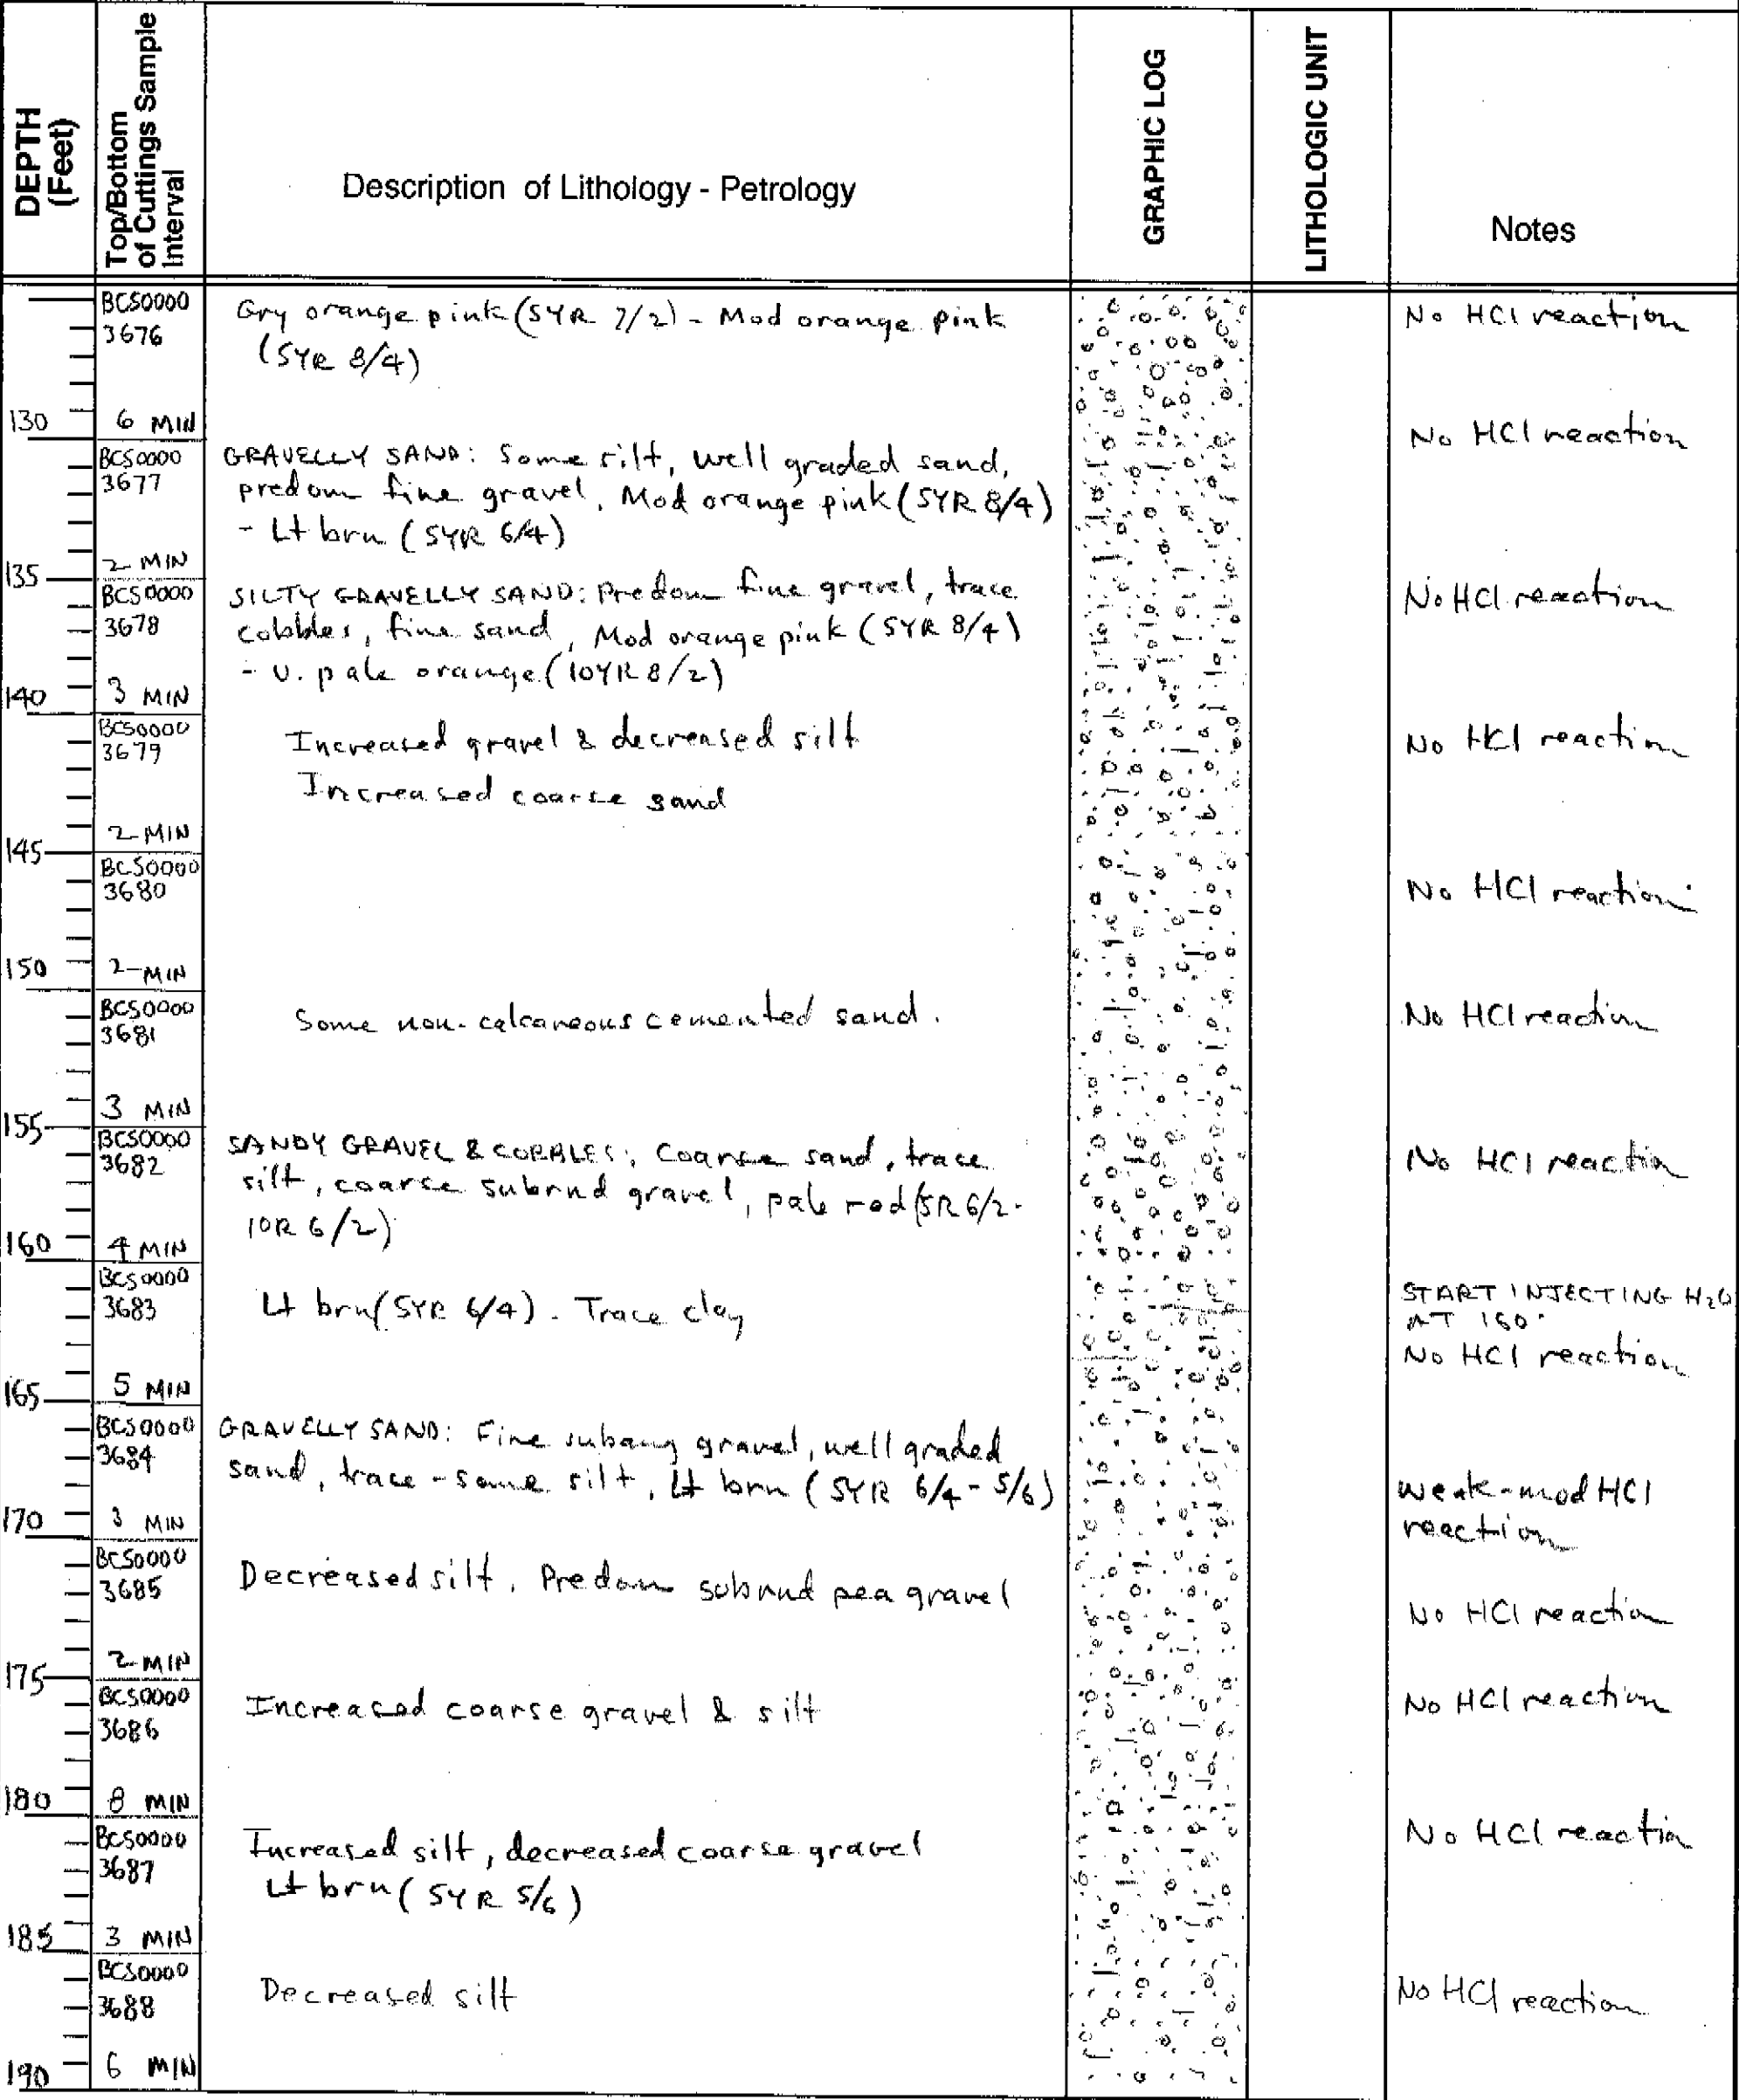 DEPTH
(Feet)
Top/Bottom
of Cuttings Sample
Interval
Description of Lithology - Petrology
GRAPHIC LOG
LITHOLOGIC UNIT
Notes
BCS0000
3676
Gry orange pink (5YR 7/2) - Mod orange pink
(5YR 8/4)
No HCl reaction
130
6 MIN
No HCl reaction
BCS0000
3677
GRAVELLY SAND: Some silt, well graded sand,
predom fine gravel, Mod orange pink (5YR 8/4)
- Lt brn (5YR 6/4)
135
2 MIN
BCS0000
3678
SILTY GRAVELLY SAND: Predom fine gravel, trace
cobbles, fine sand, Mod orange pink (5YR 8/4)
- v. pale orange (10YR 8/2)
No HCl reaction
140
3 MIN
BCS0000
3679
Increased gravel & decreased silt
Increased coarse sand
No HCl reaction
145
2 MIN
BCS0000
3680
No HCl reaction
150
2 MIN
BCS0000
3681
Some non-calcareous cemented sand.
No HCl reaction
155
3 MIN
BCS0000
3682
SANDY GRAVEL & COBBLES; Coarse sand, trace
silt, coarse subrnd gravel, pale red (5R 6/2-
10R 6/2)
No HCl reaction
160
4 MIN
BCS0000
3683
Lt brn (5YR 6/4). Trace clay
START INJECTING H2O
AT 160'
No HCl reaction
165
5 MIN
BCS0000
3684
GRAVELLY SAND: Fine subang gravel, well graded
sand, trace-some silt, Lt brn (5YR 6/4 - 5/6)
weak-mod HCl
reaction
170
3 MIN
BCS0000
3685
Decreased silt, Predom subrnd pea gravel
No HCl reaction
175
2 MIN
BCS0000
3686
Increased coarse gravel & silt
No HCl reaction
180
8 MIN
BCS0000
3687
Increased silt, decreased coarse gravel
Lt brn (5YR 5/6)
No HCl reaction
185
3 MIN
BCS0000
3688
Decreased silt
No HCl reaction
190
6 MIN